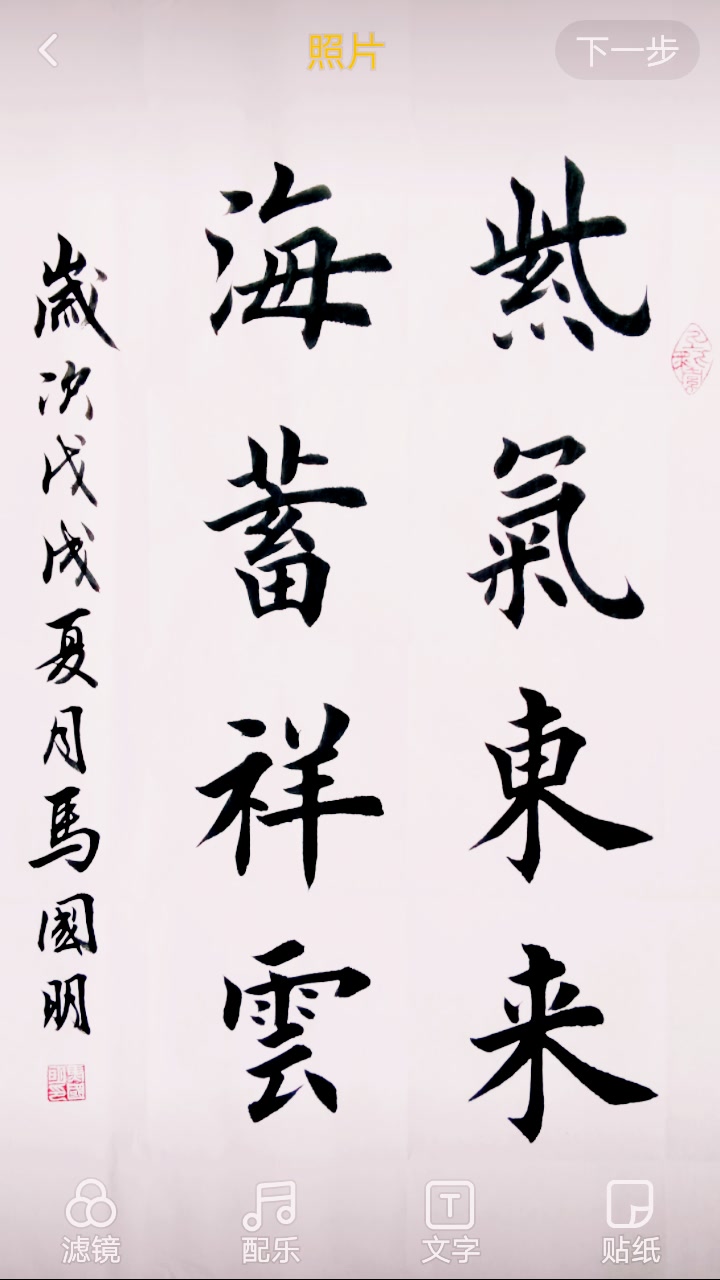 照片
下一步
紫氣東来
海蓄祥雲
歲次戊戌夏月馬國明
滤镜
配乐
文字
贴纸